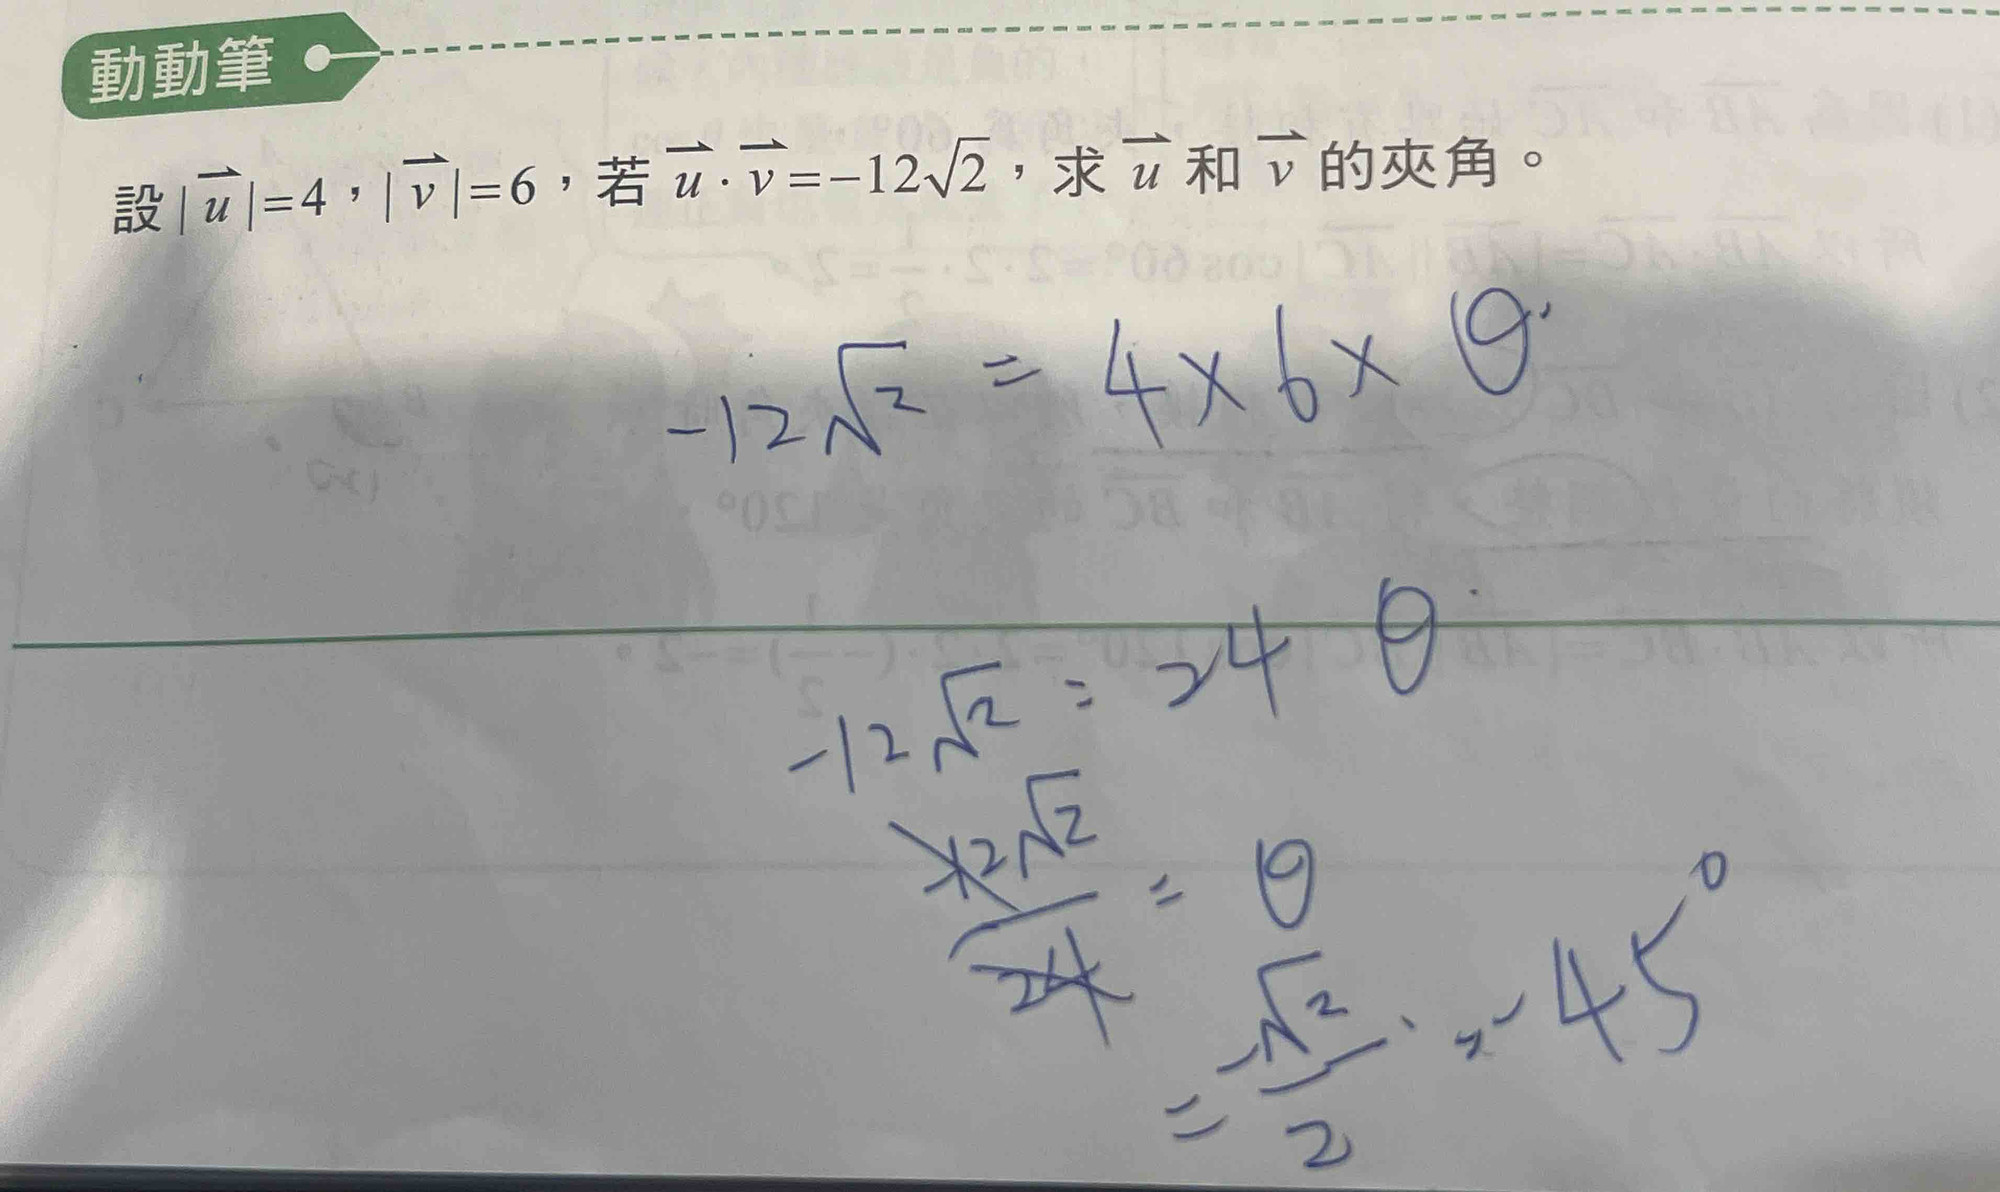 動動筆
設|u⃗|=4，|v⃗|=6，若 u⃗·v⃗=-12√2，求 u⃗ 和 v⃗ 的夾角。
-12√2 = 4×6×θ
-12√2 = 24 θ
-12√2/24 = θ
= -√2/2 = -45°